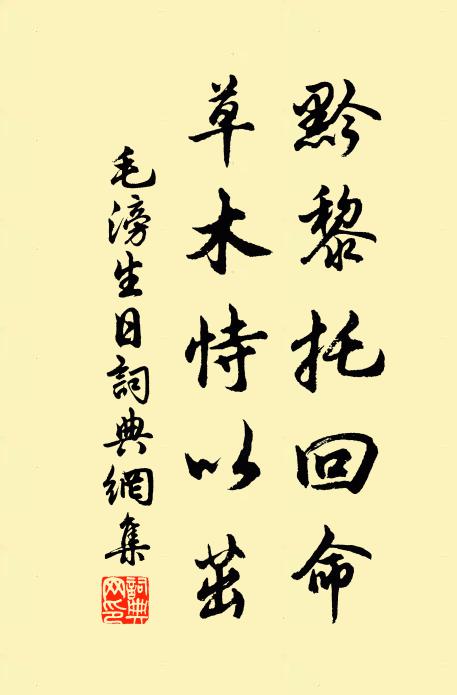 黔黎托回命
草木恃以茁
毛滂生日詞典網集
詞典網印